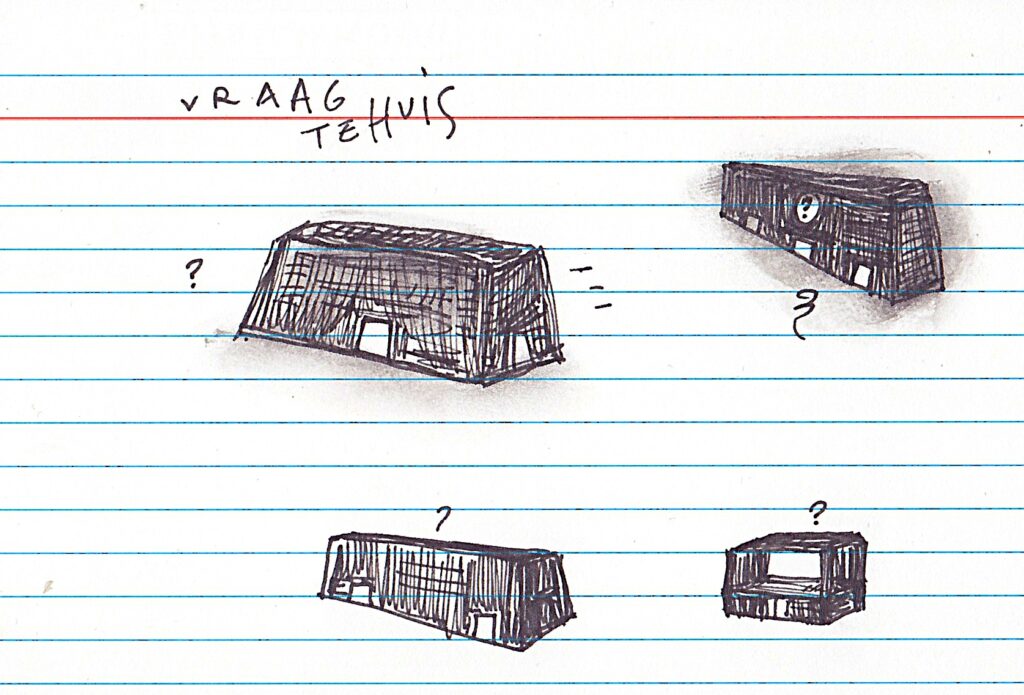 VRAAG
TEHUIS
?
?
?
?